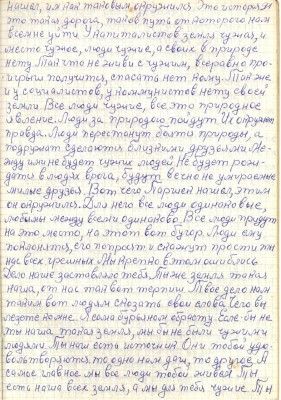 нашел, им он таковым окружился. Это история
это такая дорога, такой путь от которого нам
всем не уйти У капиталистов земля чужая, и
место чужое, люди чужие, а своих в природе
нету. Так что не живи с чужим, все равно про-
игрыш получится, спасать нет кому. Так же
и у социалистов, у коммунистов нету своей
земли. Все люди чужие, все это природное
явление. Люди за природою пойдут. Их окружит
правда. Люди перестанут болти природы, а
подружат сделаются близкими друзьями. Ме-
жду ими не будет чужих людей. Не будет рожи-
дется в людях врага, будут вечно не умираемые
милые друзья. Вот чего Паршек нашел, этим
он окружился. Для него все люди одинаковые,
любимы между всеми одинаково. Все люди придут
на это место, на этот вот бугор. Люди ему
поклонятся, его попросят и скажут прости ты
нас всех грешных. Мы крепко в этом ошиблись.
Дело наше заставляло тебя. Ты же земля такая
наша, от нас так вот терпиш. Твое дело нам
таким вот людям сказать свои слова. Чего вы
лезете ко мне. Я сама бурьяном обросту. Если бы не
ты наша такая земля, мы бы не были чужими
людями. Ты наш есть источник. Они тобой удо-
вольтворяются, то одно нам дай, то другое. А
самое главное мы все люди тобой живем. Ты
есть наша всех земля, а мы для тебя чужие. Ты